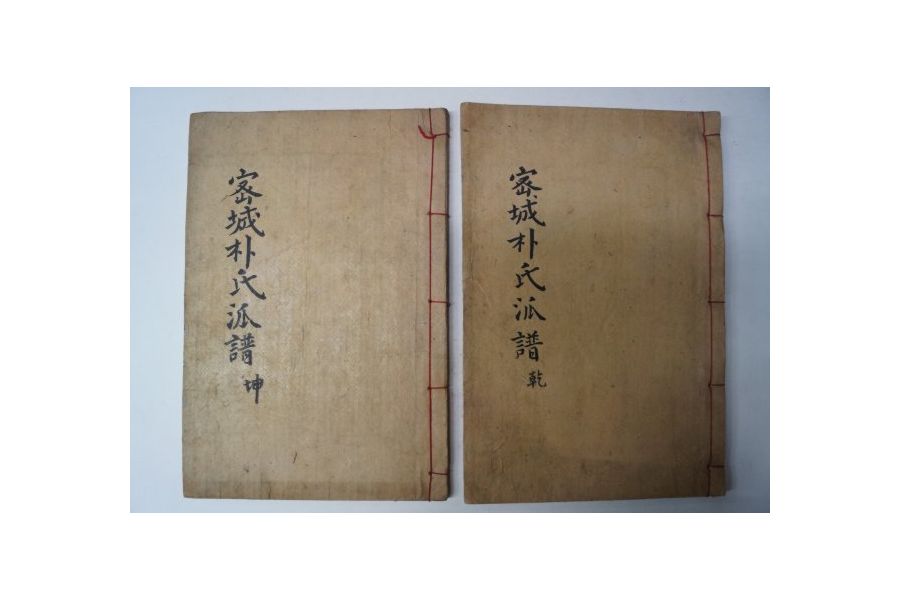 密城朴氏派譜 乾
密城朴氏派譜 坤